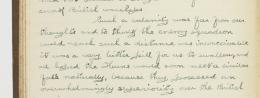 out of British warships.
Such a calamity was far from our
thoughts and to think the enemy squadron
could reach such a distance was inconceivable
it was a very bitter pill for us to swallow and
we hoped the Huns would soon meet a similar
fate naturally, because they possessed an
overwhelmingly superiority over the British